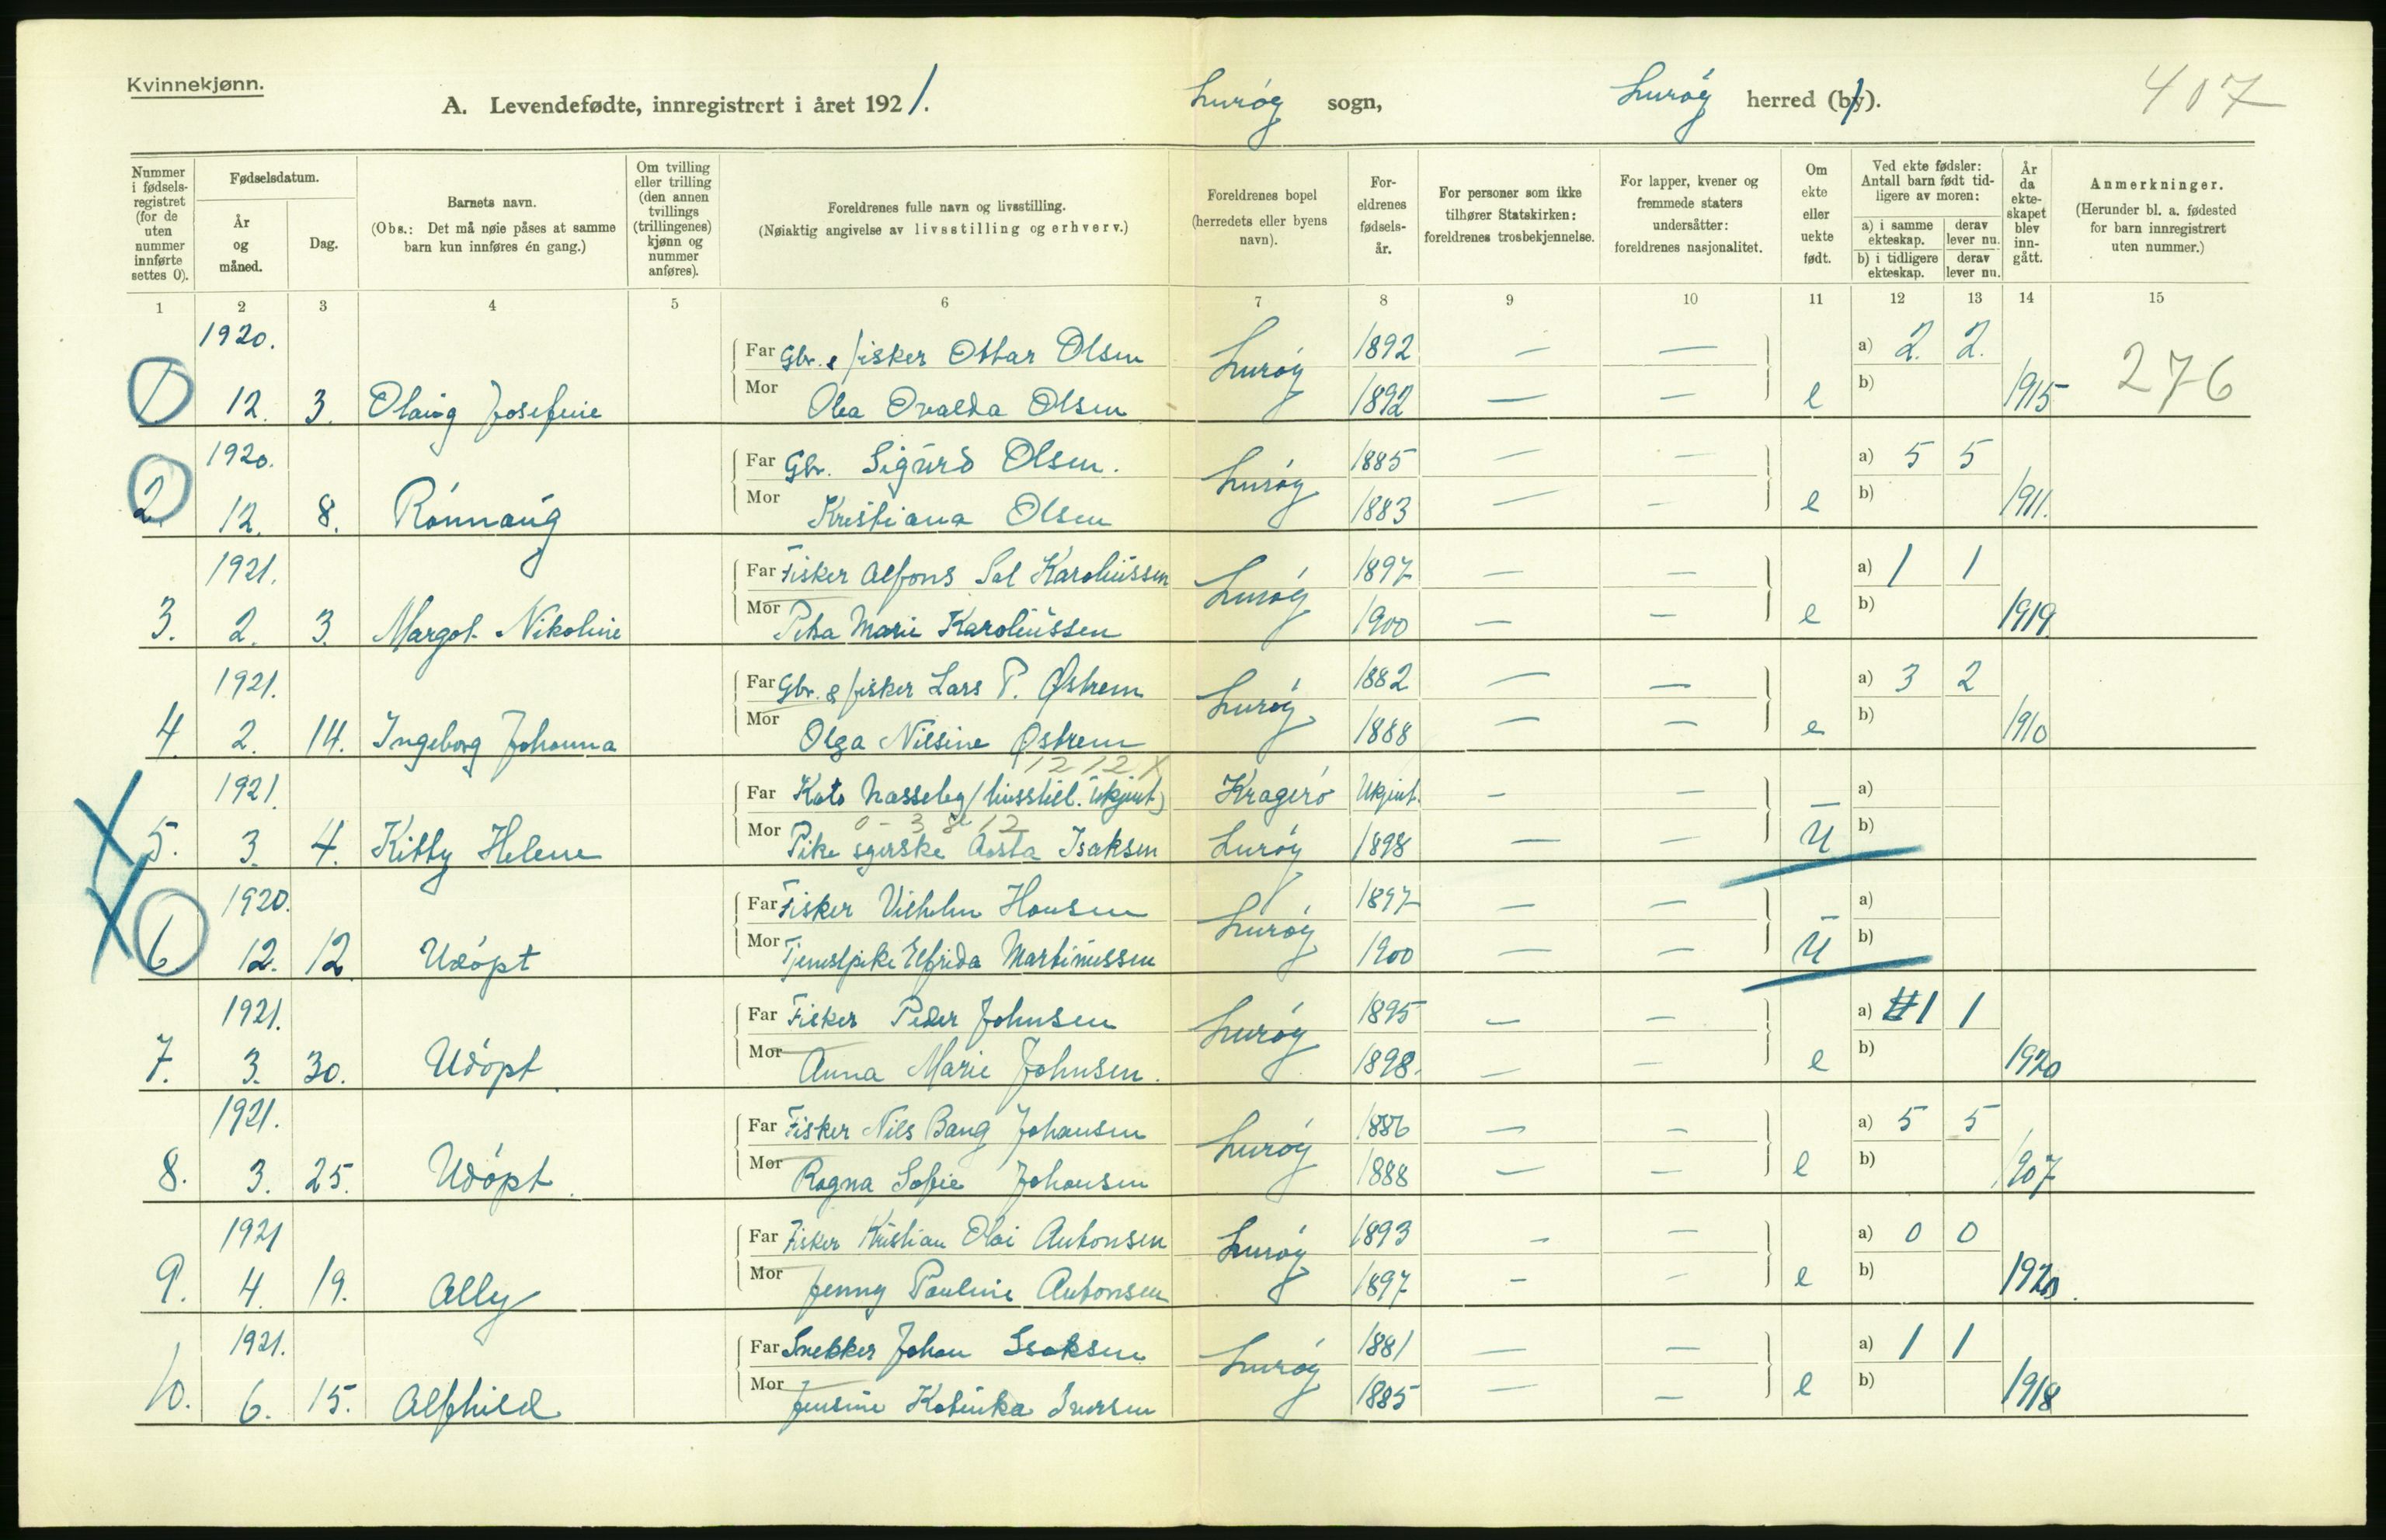 Kvinnekjønn.
A. Levendefødte, innregistrert i året 1921. Lurøy sogn, Lurøy herred (by). 407
Nummer i fødsels-registret (for de uten nummer innførte settes 0).
Fødselsdatum.
År og måned.
Dag.
Barnets navn.
(Obs.: Det må nøie påses at samme barn kun innføres én gang.)
Om tvilling eller trilling (den annen tvillings (trillingenes) kjønn og nummer anføres).
Foreldrenes fulle navn og livsstilling.
(Nøiaktig angivelse av livsstilling og erhverv.)
Foreldrenes bopel (herredets eller byens navn).
For-eldrenes fødsels-år.
For personer som ikke tilhører Statskirken: foreldrenes trosbekjennelse.
For lapper, kvener og fremmede staters undersåtter: foreldrenes nasjonalitet.
Om ekte eller uekte født.
Ved ekte fødsler: Antall barn født tid-ligere av moren:
a) i samme ekteskap. derav lever nu.
b) i tidligere ekteskap. derav lever nu.
År da ekte-skapet blev inn-gått.
Anmerkninger.
(Herunder bl. a. fødested for barn innregistrert uten nummer.)
1 2 3 4 5 6 7 8 9 10 11 12 13 14 15
1920. Far Gbr. & fisker Ottar Olsen Lurøy 1892 — — a) 2. 2. 276
1 12. 3. Olaug Josefine Mor Olea Ovalda Olsen 1892 — — e b) 1915
1920. Far Gbr. Sigurd Olsen. Lurøy 1885 — — a) 5 5
2. 12. 8. Rónnaug Mor Kristiana Olsen 1883 — — e b) 1911.
1921. Far Fisker Alfons Sal Karoliussen Lurøy 1897 — — a) 1 1
3. 2. 3. Margot Nikoline Mor Petra Marie Karoliussen 1900 — — e b) 1919.
1921. Far Gbr. & fisker Lars P. Østrem Lurøy 1882 — — a) 3 2
4. 2. 14. Ingeborg Johanna Mor Olga Nilsine Østrem 1888 — — e b) 1910
1212 X
1921. Far Kato Nasseleg (livsstil. ukjent) Kragerø Ukjent. - — a)
0 - 3 8 12
5. 3. 4. Kitty Helene Mor Pike syerske Asta Isaksen Lurøy 1898 — — U b)
1920. Far Fisker Vilhelm Hansen Lurøy 1897 — — a)
6 12. 12. Udópt Mor Tjenestpike Elfrida Martinussen 1900 — — U b)
1921. Far Fisker Peder Johnsen Lurøy 1895 — — a) 1 1
7. 3. 30. Udópt Mor Anna Marie Johnsen. 1898. — — e b) 1920
1921. Far Fisker Nils Bang Johansen Lurøy 1886 — — a) 5 5
8. 3. 25. Udópt. Mor Ragna Sofie Johansen 1888 — — e b) 1907
1921 Far Fisker Kristian Olai Antonsen Lurøy 1893 - — a) 0 0
9. 4. 19. Ally Mor Jenny Pauline Antonsen 1897 - - e b) 1920.
1921. Far Snekker Johan Isaksen Lurøy 1881 — — a) 1 1
10. 6. 15. Alfhild Mor Jensine Katinka Iversen 1885 — — e b) 1918